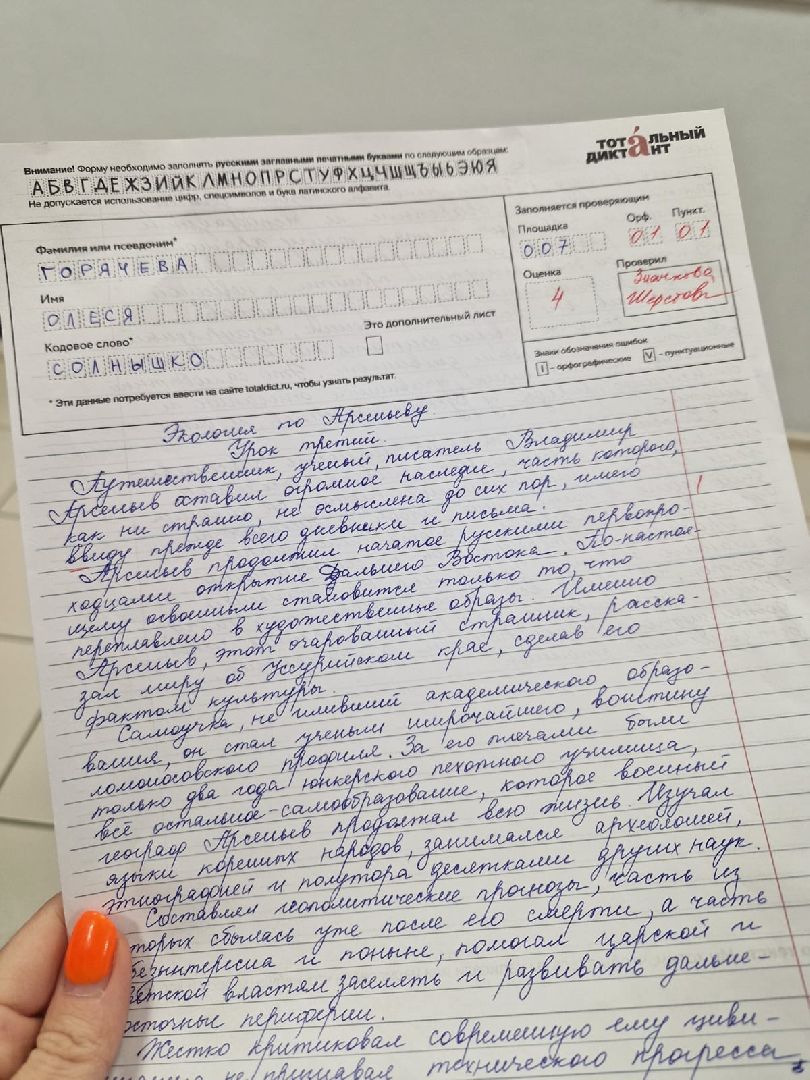 Внимание! Форму необходимо заполнять русскими заглавными печатными буквами по следующим образцам:
АБВГДЕЖЗИЙКЛМНОПРСТУФХЦЧШЩЪЫЬЭЮЯ
Не допускается использование цифр, спецсимволов и букв латинского алфавита.
тотáльный
диктант
Фамилия или псевдоним*
ГОРЯЧЕВА
Имя
ОЛЕСЯ
Кодовое слово*
СОЛНЫШКО
Это дополнительный лист
* Эти данные потребуется ввести на сайте totaldict.ru, чтобы узнать результат.
Заполняется проверяющим
Площадка
Орф.
Пункт.
007
01
01
Оценка
Проверил
4
Знаки обозначения ошибок
I - орфографические
V - пунктуационные
Экология по Арсеньеву.
Урок третий.
Путешественник, ученый, писатель Владимир
Арсеньев оставил огромное наследие, часть которого,
как ни странно, не осмыслена до сих пор, имею
ввиду прежде всего дневники и письма.
Арсеньев продолжил начатое русскими первопро-
ходцами открытие Дальнего Востока. По-настоя-
щему освоенным становится только то, что
переплавлено в художественные образы. Именно
Арсеньев, этот очарованный странник, расска-
зал миру об Уссурийском крае, сделав его
фактом культуры.
Самоучка, не имевший академического образо-
вания, он стал ученым широчайшего, воистину
ломоносовского профиля. За его плечами были
только два года юнкерского пехотного училища,
всё остальное-самообразование, которое военный
географ Арсеньев продолжал всю жизнь. Изучал
языки коренных народов, занимался археологией,
этнографией и полутора десятками других наук.
Составлял геополитические прогнозы, часть из
торых сбылась уже после его смерти, а часть
безынтересна и поныне, помогал царской и
ветской властям заселять и развивать дальне-
осточные периферии.
Жестко критиковал современную ему циви-
не принимал технического прогресса